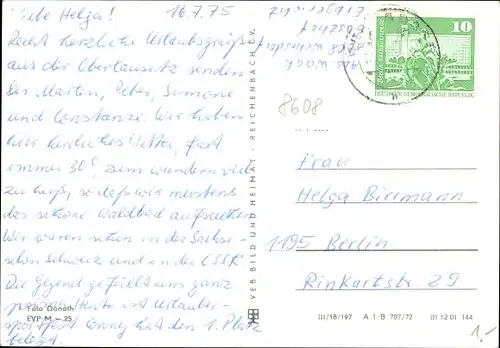 Liebe Helga! 16.7.75
Recht herzliche Urlaubsgrüße
aus der Oberlausitz senden
Dir Marten, Peter, Simone
und Constanze. Wir haben
hier herrliches Wetter, fast
immer 30°, zum wandern viel
zu heiß, so daß wir meistens
das schöne Waldbad aufsuchen.
Wir waren schon in der Sächsi-
schen Schweiz und in der ČSSR.
Die Gegend gefällt uns ganz
Heute ist Urlauber-
sportfest Conny hat den 1. Platz
belegt.
Foto Donath
EVP M –.25
VEB BILD UND HEIMAT · REICHENBACH I. V.
10
DEUTSCHE DEMOKRATISCHE REPUBLIK
8608
Frau
Helga Biermann
1195 Berlin
Rinkartstr. 29
III/18/197 A 1 B 707/72 01 12 01 144
1,-